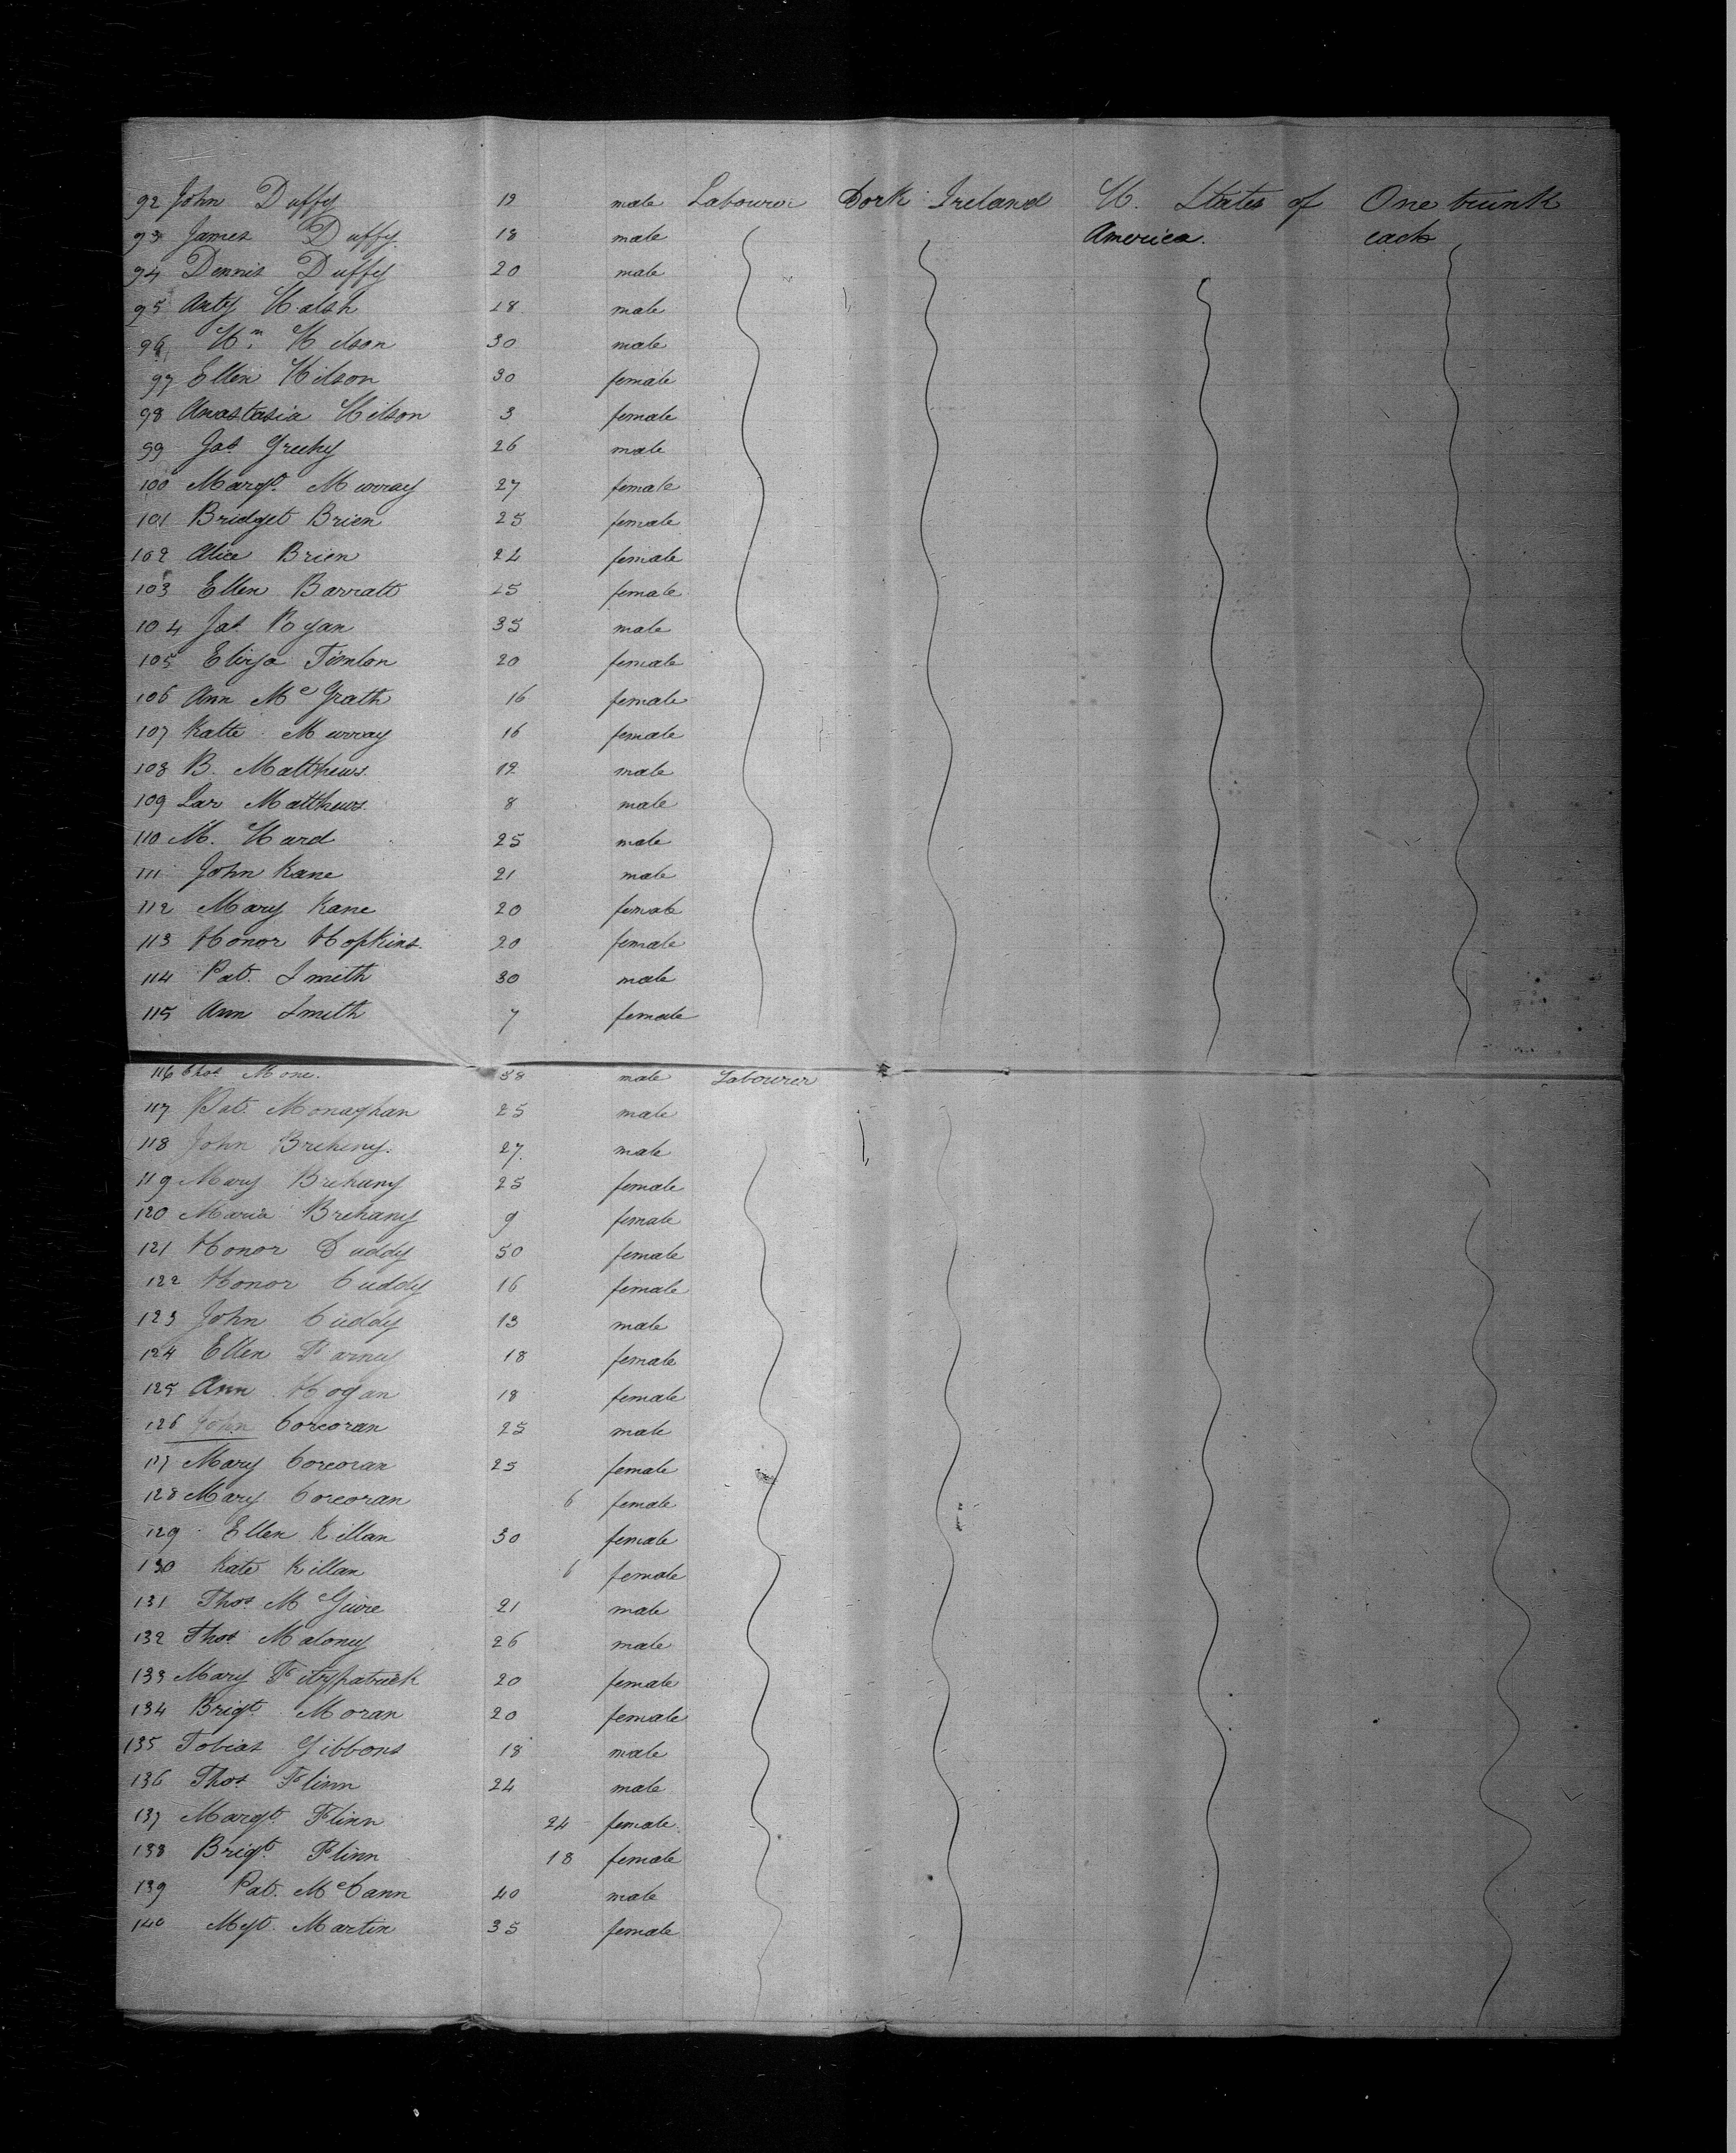 92 John Duffy 19 male Labourer Cork Ireland U. States of One trunk
93 James Duffy 18 male America. each
94 Dennis Duffy 20 male
95 Anty Walsh 18 male
96 Wm. Wilson 30 male
97 Ellen Wilson 30 female
98 Anastasia Wilson 3 female
99 Jas Greehy 26 male
100 Margt. Murray 27 female
101 Bridget Brien 25 female
102 Alice Brien 24 female
103 Ellen Barratt 25 female
104 Jas Ryan 35 male
105 Eliza Timlon 20 female
106 Ann McGrath 16 female
107 Katte Murray 16 female
108 B. Matthews 12 male
109 Lar Matthews 8 male
110 M. Ward 25 male
111 John Kane 21 male
112 Mary Kane 20 female
113 Honor Hopkins 20 female
114 Pat. Smith 30 male
115 Ann Smith 7 female
116 Thos Mone. 38 male Labourer
117 Pat. Monaghan 25 male
118 John Breheny. 27 male
119 Mary Brehuny 25 female
120 Maria Brehany 9 female
121 Honor Cuddy 50 female
122 Honor Cuddy 16 female
123 John Cuddy 13 male
124 Ellen Farney 18 female
125 Ann Hogan 18 female
126 John Corcoran 25 male
127 Mary Corcoran 25 female
128 Mary Corcoran 6 female
129 Ellen Killan 30 female
130 Kate Killan 6 female
131 Thos McGuire 21 male
132 Thos Maloney 26 male
133 Mary Fitzpatrick 20 female
134 Brigt. Moran 20 female
135 Tobias Gibbons 18 male
136 Thos Flinn 24 male
137 Margt. Flinn 24 female
138 Brigt. Flinn 18 female
139 Pat. McCann 40 male
140 Mgt. Martin 35 female